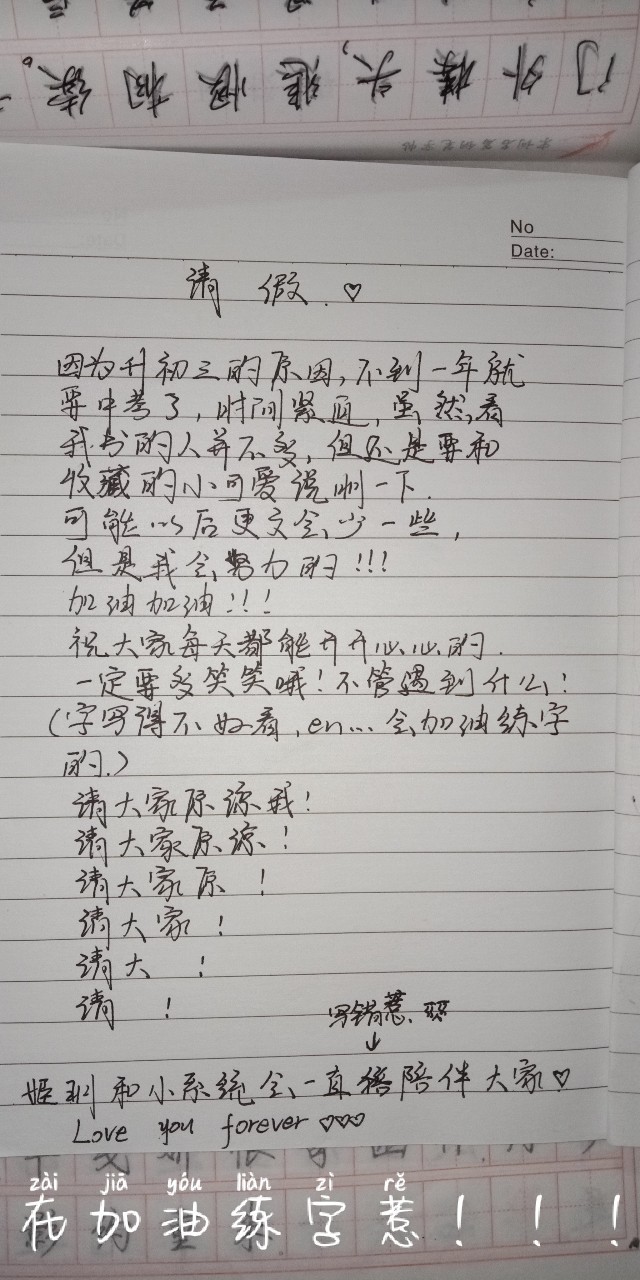 门外楼头,悲恨相续。
No
Date:
请 假.♡
因为升初三的原因,不到一年就
要中考了,时间紧迫,虽然看
我书的人并不多,但还是要和
收藏的小可爱说明一下.
可能以后更文会少一些,
但是我会努力的!!!
加油加油!!!
祝大家每天都能开开心心的.
一定要多笑笑哦!不管遇到什么!
(字写得不好看,en...会加油练字
的.)
请大家原谅我!
请大家原谅!
请大家原 !
请大家 !
请大 !
请 !
写错惹.
↓
姬玥和小系统会一直陪伴大家♡
Love you forever ♡♡♡
zài jiā yóu liàn zì rě
在加油练字惹!!!